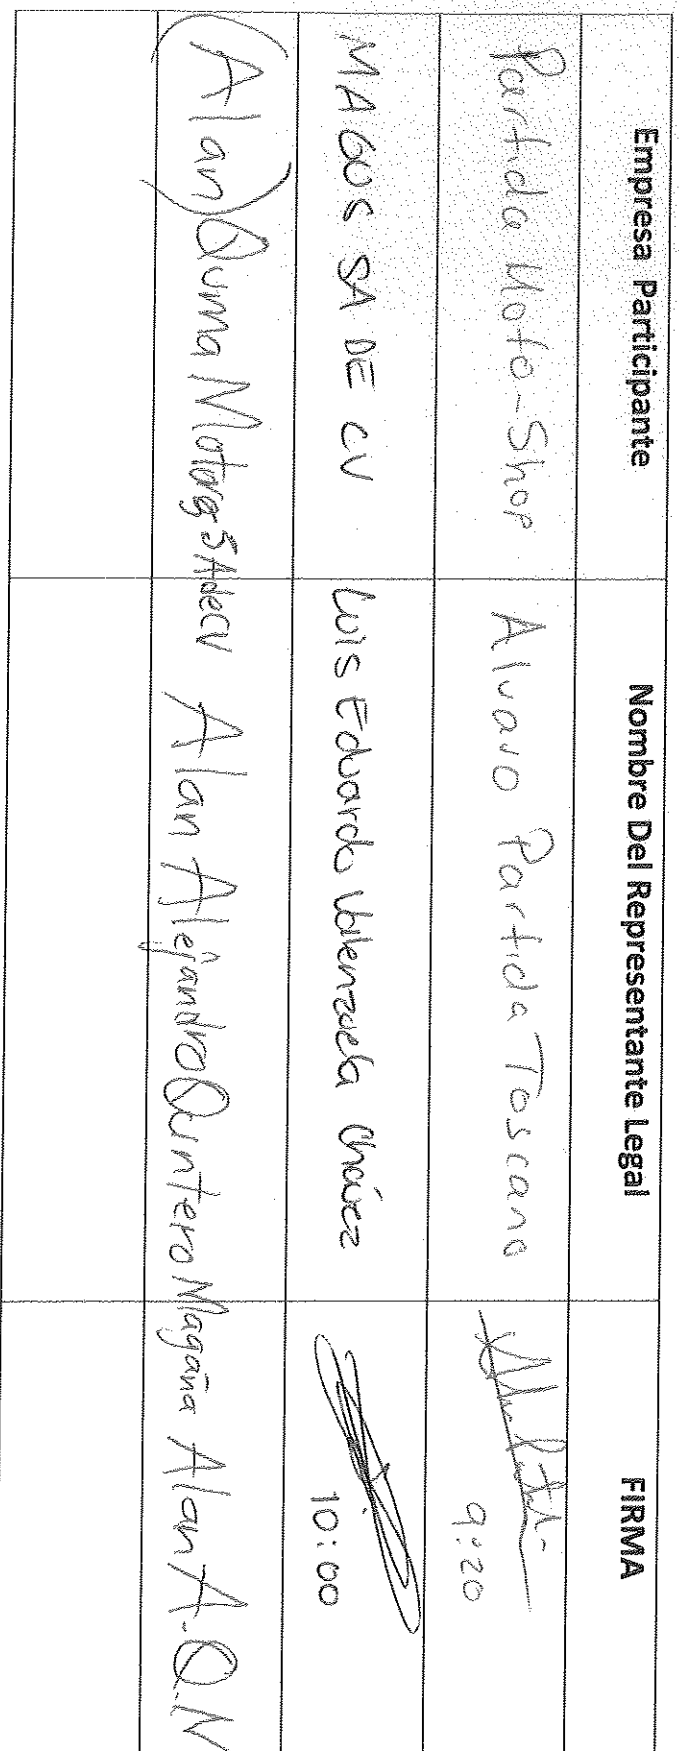 Empresa Participante Nombre Del Representante Legal FIRMA
Partida Moto-Shop Alvaro Partida Toscano 9:20
MAGUS SA DE CV Luis Eduardo Valenzuela Chávez 10:00
(Alan) Quma Motors SA de CV Alan Alejandro Quintero Magaña Alan A.Q.N